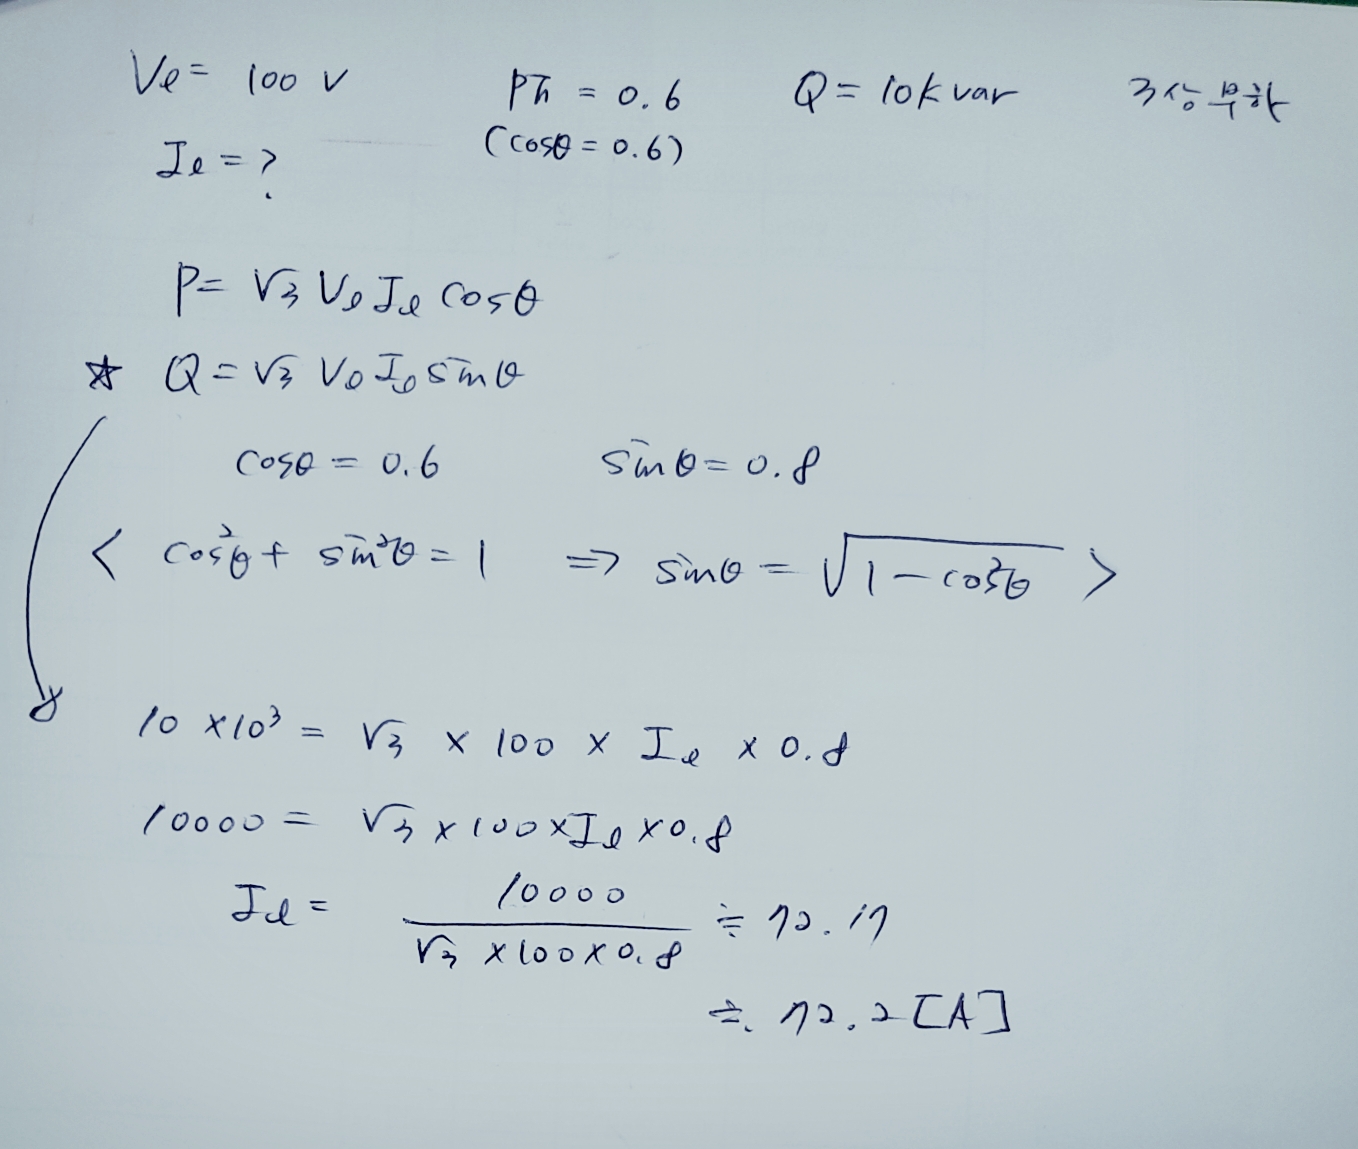 Vℓ = 100 V Pf = 0.6 Q = 10k var 3상 부하
Iℓ = ? (cosθ = 0.6)
P = √3 Vℓ Iℓ cosθ
☆ Q = √3 Vℓ Iℓ sinθ
cosθ = 0.6 sinθ = 0.8
< cos²θ + sin²θ = 1 ⇒ sinθ = √1 - cos²θ >
10 × 10³ = √3 × 100 × Iℓ × 0.8
10000 = √3 × 100 × Iℓ × 0.8
Iℓ = 10000 / √3 × 100 × 0.8 ≒ 72.17
≒ 72.2 [A]